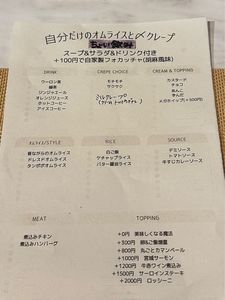 自分だけのオムライスと〆クレープ
スープ&サラダ&ドリンク付き
+100円で自家製フォカッチャ(胡麻風味)
DRINK
ウーロン茶
緑茶
ジンジャエール
オレンジジュース
ホットコーヒー
アイスコーヒー
CREPE CHOICE
モチモチ
サクサク
ミルクレープ
CREAM & TOPPING
カスタード
チョコ
あんこ
きなこ
メガホイップ(+500円)
オムライスSTYLE
昔ながらのオムライス
ドレスドオムライス
タンポポオムライス
RICE
白ご飯
ケチャップライス
バター醤油ライス
SOURCE
デミソース
トマトソース
牛すじカレーソース
MEAT
煮込みチキン
煮込みハンバーグ
TOPPING
+0円 美味しくなる魔法
+300円
+800円 丸ごとカマンベール
+1000円 宮城サーモン
+1200円 牛赤ワイン煮込み
+1500円 サーロインステーキ
+2000円 ロッシーニ